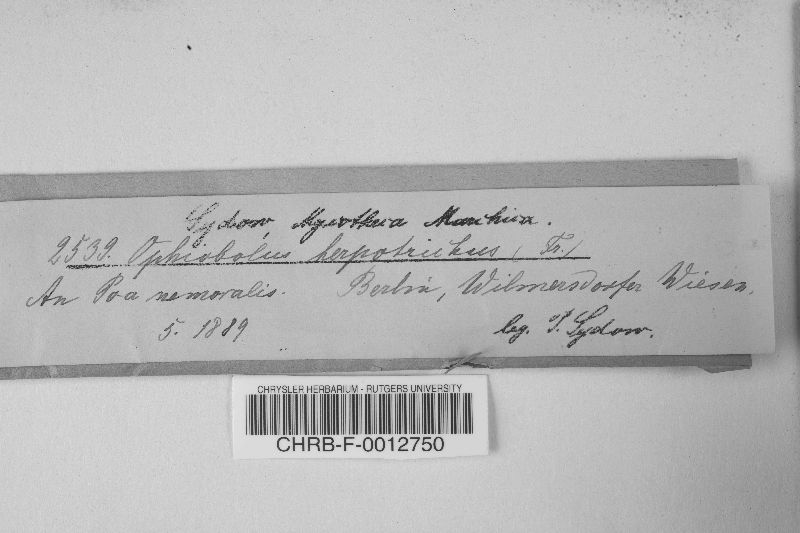 Sydow, Mycotheca Marchica.
2539. Ophiobolus herpotrichus (Fr.)
An Poa nemoralis. Berlin, Wilmersdorfer Wiesen.
5. 1889 leg. P. Sydow.
CHRYSLER HERBARIUM - RUTGERS UNIVERSITY
CHRB-F-0012750